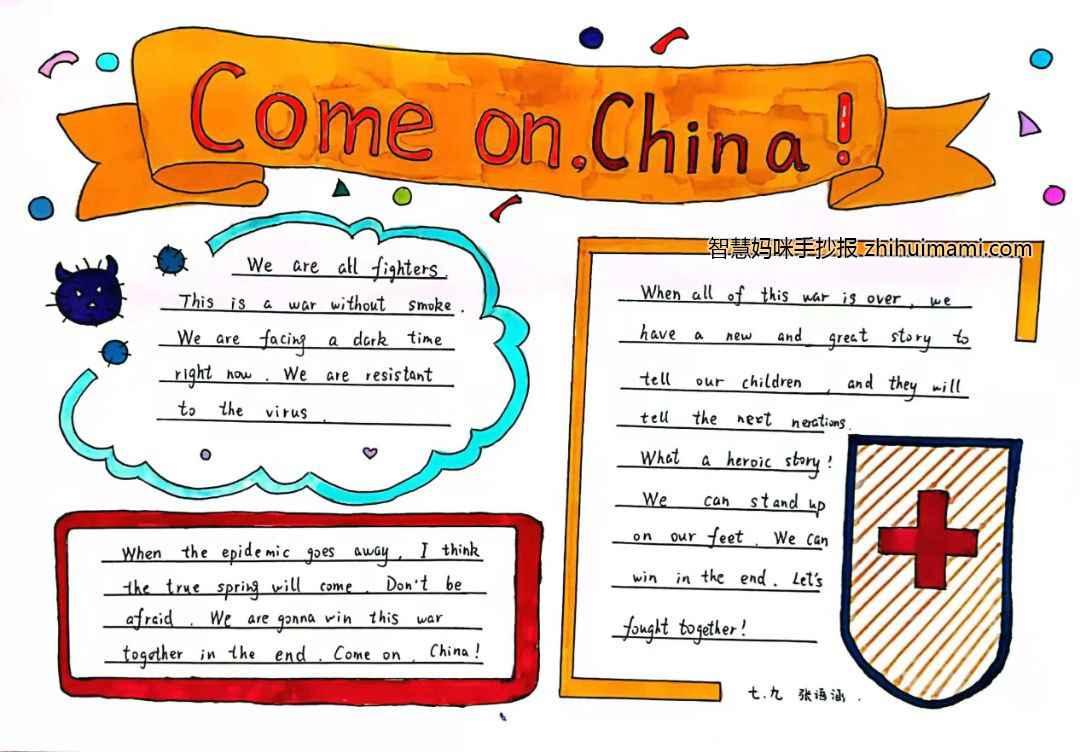 Come on, China!
智慧妈咪手抄报 zhihuimami.com
We are all fighters.
This is a war without smoke.
We are facing a dark time
right now. We are resistant
to the virus.
When the epidemic goes away, I think
the true spring will come. Don't be
afraid. We are gonna win this war
together in the end. Come on, China!
When all of this war is over, we
have a new and great story to
tell our children, and they will
tell the next nerations.
What a heroic story!
We can stand up
on our feet. We can
win in the end. Let's
fought together!
七.九 张语涵.